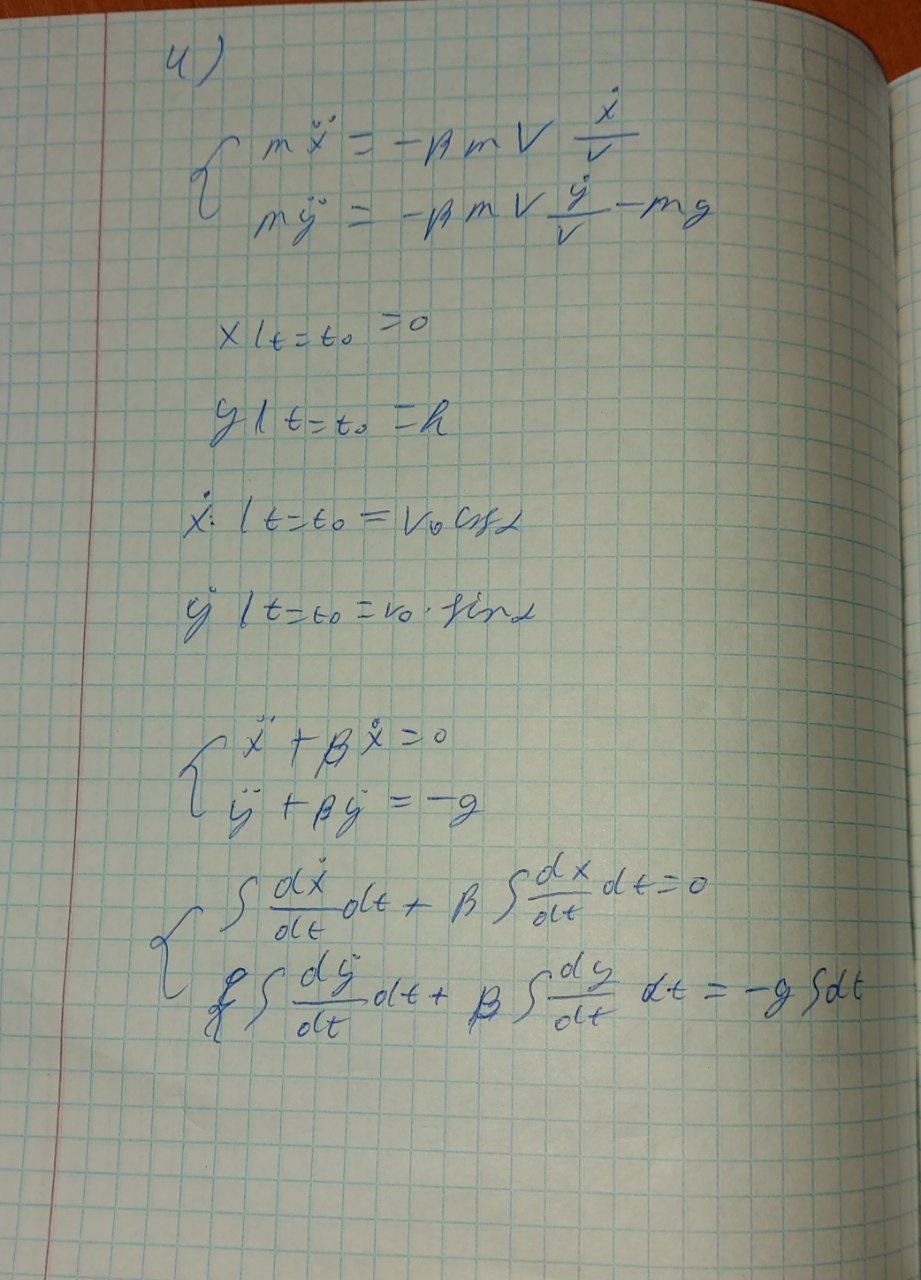 4)
{ mẍ = -βmV ẋ/v
mÿ = -βmV ẏ/v - mg
x|t=t₀ = 0
y|t=t₀ = h
ẋ|t=t₀ = v₀ cosα
ẏ|t=t₀ = v₀·sinα
{ ẍ + βẋ = 0
ÿ + βẏ = -g
{ ∫ dẋ/dt dt + β ∫ dx/dt dt = 0
∫ dẏ/dt dt + β ∫ dy/dt dt = -g∫dt